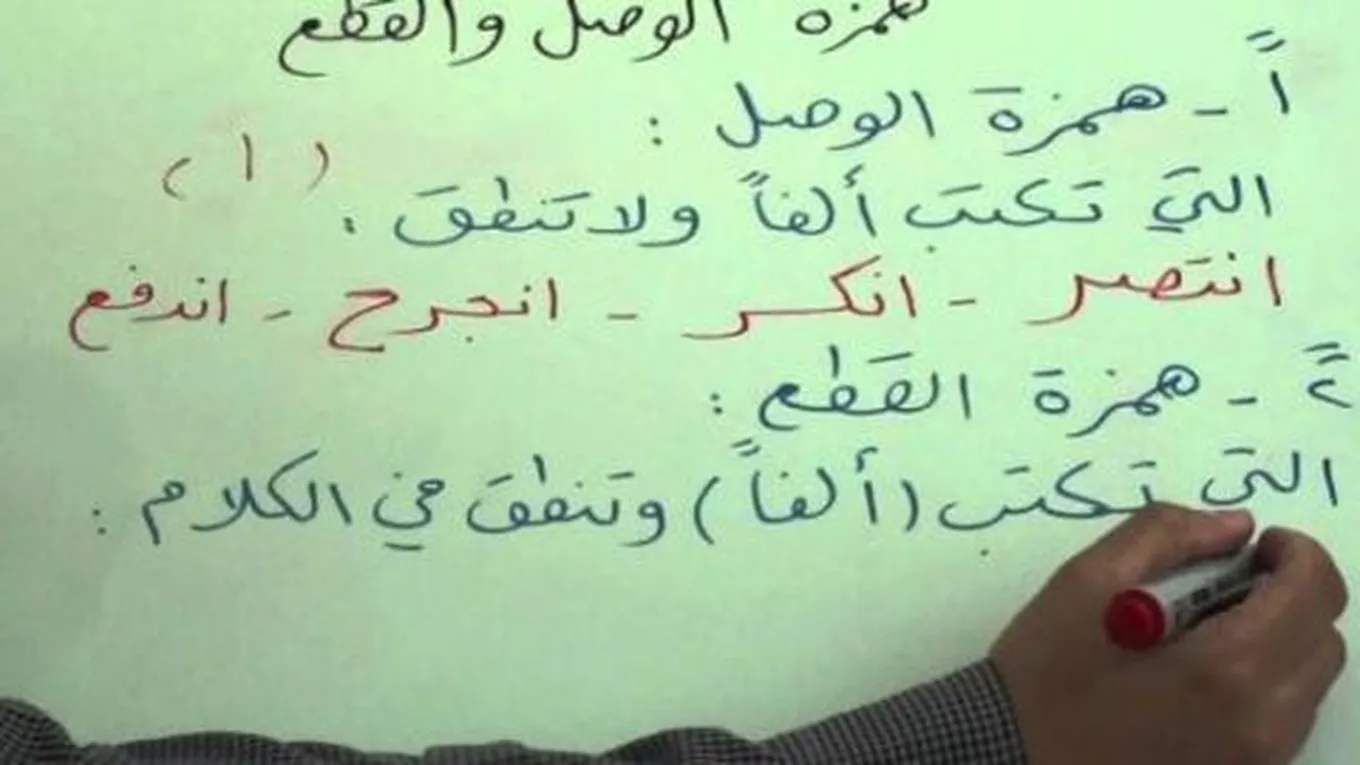 همزة الوصل والقطع
أً - همزة الوصل :
التي تكتب ألفاً ولا تنطق : ( ا )
انتصر - انكسر - انجرح - اندفع
٢ً - همزة القَطع :
التي تكتب (ألفاً) وتنطق في الكلام :